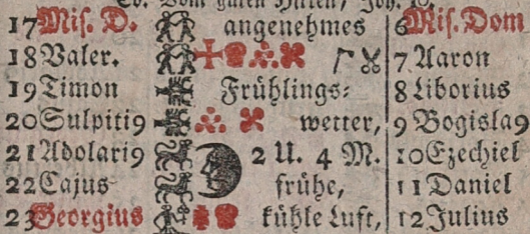 Ev. Vom guten Hirten, Joh. 10.
17 Mis. D. angenehmes 6 Mis. Dom
18 Valer. 7 Aaron
19 Timon Frühlings⸗ 8 Liborius
20 Sulpiti9 wetter, 9 Bogisla9
21 Adolari9 2 U. 4 M. 10 Ezechiel
22 Cajus frühe, 11 Daniel
23 Georgius kühle Luft, 12 Julius